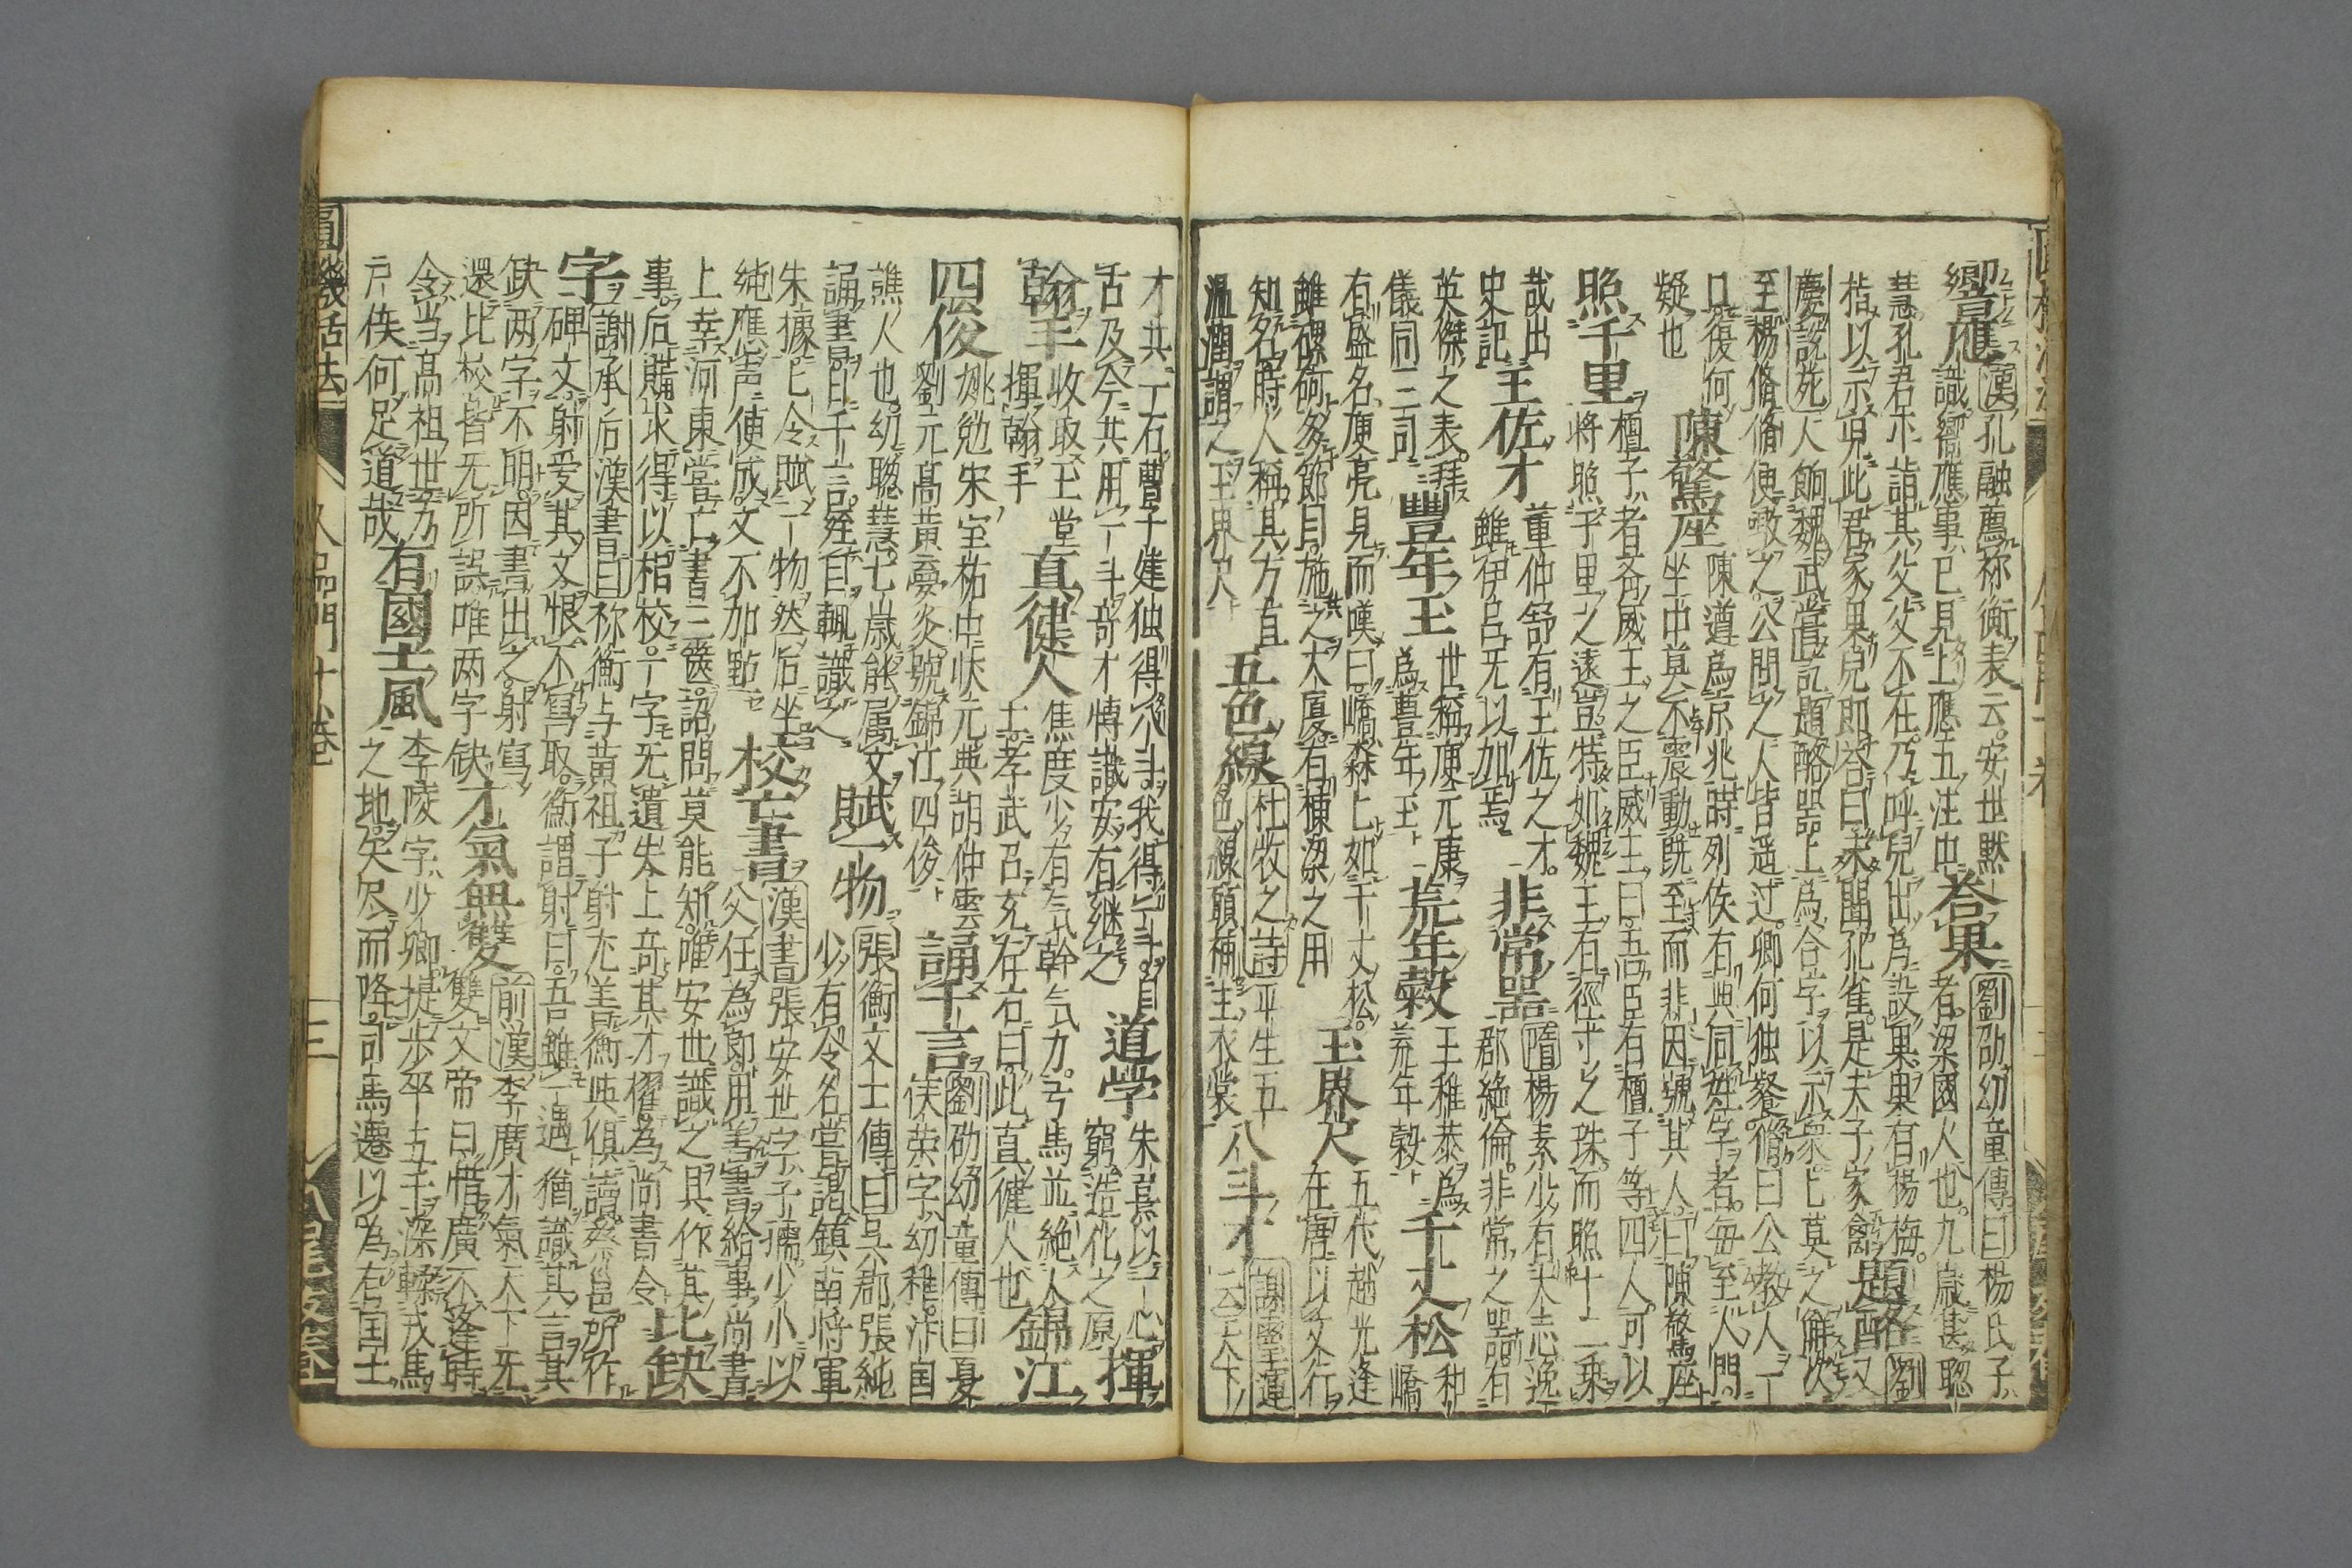 響應
漢孔融薦祢衡表云安世默
識嚮應事已見上應五注中
答果
劉劭幼童傳曰楊氏子
者梁國人也九歳甚聡
慧孔君平詣其父父不在乃呼兒出為設果果有楊梅
指以示兒此君家果兒即答曰未聞孔雀是夫子家禽
題酪
劉
又
慶説苑人餉魏武嘗記題酪器上為合字以示衆匕莫之解次
至楊脩脩便噉之公問之人皆遥过卿何独餐脩曰公教人一
口復何
疑也
陳驚座
陳遵為京兆時列侯有與同姓字者毎至人門
坐中莫不震動既至而非因號其人曰陳驚座
照千里
檀子者斉威王之臣威王曰吾臣有檀子等四人可以
將照千里之遠豈特如魏王有径寸之珠而照十二乗
哉出
史記
王佐才
董仲舒有王佐之才
雖伊呂无以加焉
非常器
隋楊素少有大志逸
郡絶倫非常之器有
英傑之表拜
儀同三司
豐年玉
世稱庾元康
為豊年玉
荒年穀
王稚恭為
荒年穀
千丈松
和
嶠
有盛名庾亮見而嘆曰嶠森匕如千丈松
雖磥砢多節目施之大廈有棟梁之用
玉界尺
五代趙光逢
在唐以文行
知名時人稱其方直
温潤謂之玉界尺
五色線
杜牧之詩平生五
色線願補主衣裳
八斗才
謝靈運
云天下
才共一石曹子建独得八斗我得一斗自
古及今共用一斗奇才博識安有継之
道学
朱熹以一心
窮造化之原
揮翰手
收取玉堂
揮翰手
真健人
焦度少有気幹気力弓馬並絶人
孝武召充左右曰此真健人也
錦江四俊
姚勉宋宝祐中状元與胡仲雲
劉元高黄夢炎號錦江四俊
誦千言
劉劭幼童傳曰夏
侯荣字幼稚沛国
譙人也幼聡慧七歳能属文
誦書日千言経目輒識之
賦一物
張衡文士傳曰呉郡張純
少有令名嘗謁鎮南将軍
朱據匕令賦一物然后坐
純應声便成文不加點
校亡書
漢書張安世字子孺少小以
父任為郎用善書給事尚書
上幸河東嘗亡書三篋詔問莫能知唯安世識之具作其
事后購求得以相校一字无遺失上奇其才擢為尚書令
比缺字
謝承后漢書曰祢衡与黄祖子射尤善衡與倶讀蔡邕所作
碑文射爱其文恨不寫取衡謂射曰吾雖一遇猶識其言其
缺两字不明因書出之射寫
還比校皆无所誤唯两字缺
才氣無雙
前漢李廣才氣天下无
雙文帝曰惜廣不逢時
令当高祖世乃
户侯何足道哉
有國士風
李陵字少卿提歩卒五千深轢戎馬
之地矢尽而降司馬遷以為有国士
圓機活法
人品門十巻
三